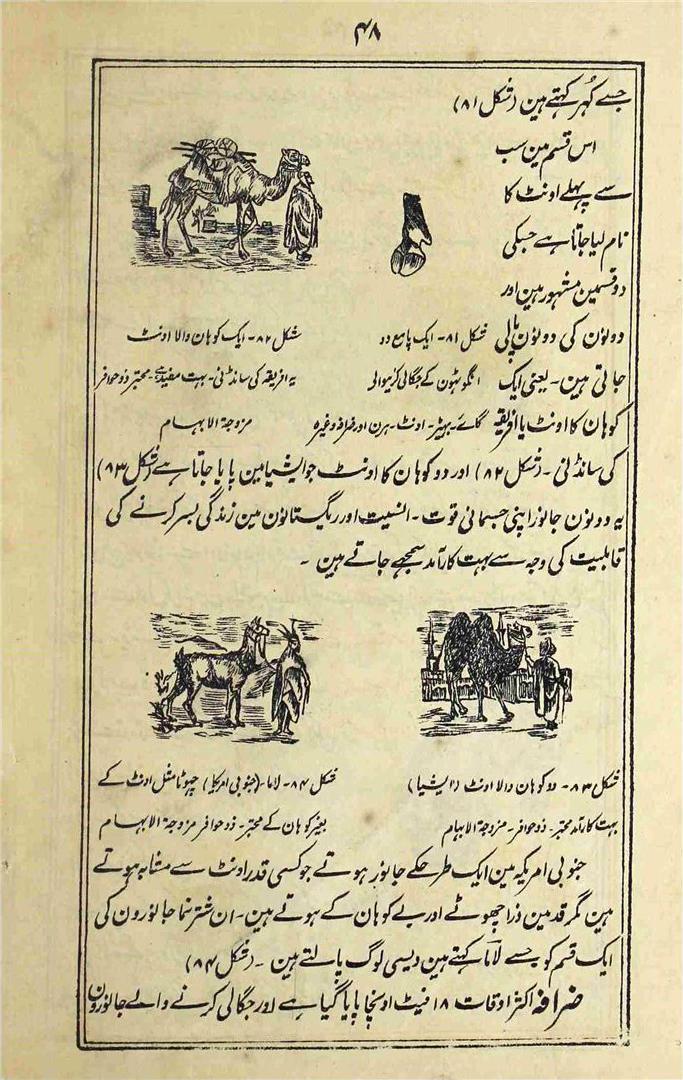 ۴۸
جسے کُہر کہتے ہین (شکل ۸۱)
اس قسم مین سب
سے پہلے اونٹ کا
نام لیا جاتا ہے جسکی
دو قسمین مشہور ہین اور
دونون کی دونون پالی
جاتی ہین۔ یعنی ایک
کوہان کا اونٹ یا افریقہ
شکل ۸۱۔ ایک پامع دو
انگوٹہون کے جگالی کرنیوالی
گائے۔ بہیڑ۔ اونٹ۔ ہرن اور ضرافہ وغیرہ
شکل ۸۲۔ ایک کوہان والا اونٹ
یہ افریقہ کی سانڈنی۔ بہت مفید ہے۔ مجتر ذوحوافر
مزوجۃ الابہام
کی سانڈنی۔ (شکل ۸۲) اور دو کوہان کا اونٹ جو ایشیا مین پایا جاتا ہے (شکل ۸۳)
یہ دونون جانور اپنی جسمانی قوت۔ انسیت اور ریگستانون مین زندگی بسر کرنے کی
قابلیت کی وجہ سے بہت کارآمد سمجھے جاتے ہین۔
شکل ۸۳۔ دو کوہان والا اونٹ (ایشیا)
بہت کارآمد مجتر۔ ذوحوافر۔ مزوجۃ الابہام
شکل ۸۴۔ لاما۔ (جنوبی امریکا) چہوٹا مثل اونٹ کے
بغیر کوہان کے مجتر۔ ذوحوافر مزوجۃ الابہام
جنوبی امریکہ مین ایک طرحکے جانور ہوتے جو کسی قدر اونٹ سے مشابہ ہوتے
ہین مگر قد مین ذرا چھوٹے اور بے کوہان کے ہوتے ہین۔ ان شتر نما جانورون کی
ایک قسم کو جسے لاما کہتے ہین دیسی لوگ پالتے ہین۔ (شکل ۸۴)
ضرافہ اکثر اوقات ۱۸ فیٹ اونچا پایا گیا ہے اور جگالی کرنے والے جانورون